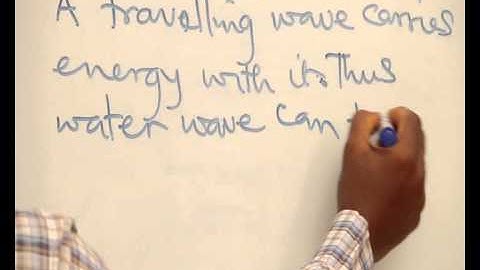 A travelling wave carries
energy with it. Thus
water wave can